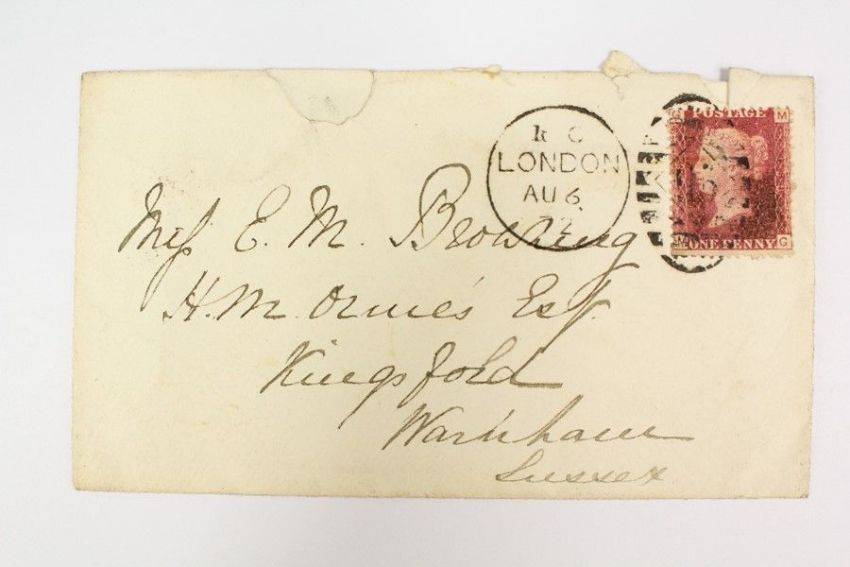 R C
LONDON
AU 6
G POSTAGE M
ONE PENNY G
Miss E. M. Browning
H. M. Orme's Esq.
Kingsfold
Warnham
Sussex